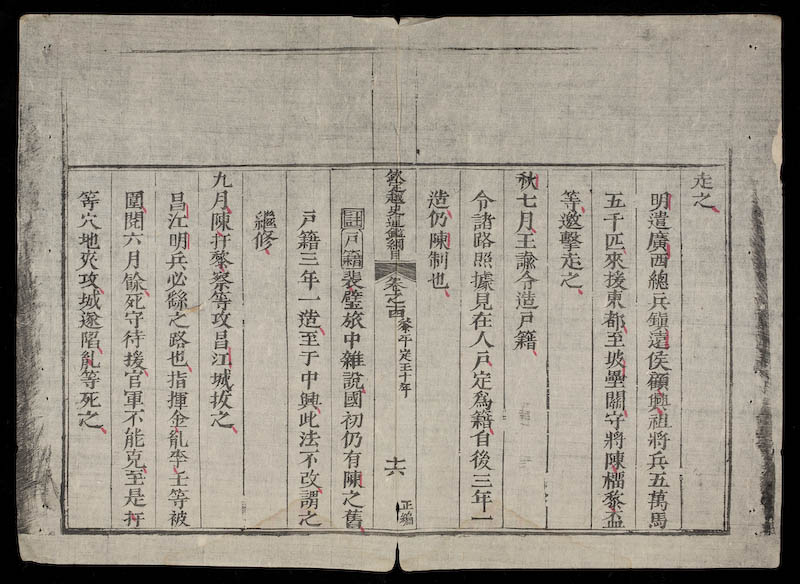 走之
明遣廣西總兵鎮遠侯顧興祖將兵五萬馬
五千匹來援東都至坡壘關守將陳榴黎盃
等邀擊走之
秋七月王諭令造戶籍
令諸路照據見在人戶定爲籍自後三年一
造仍陳制也
欽定越史通鑑綱目 卷之十四 黎平定王十年 十六 正編
註戶籍裴璧旅中雜說國初仍有陳之舊
戶籍三年一造至于中興此法不改謂之
繼修
九月陳扞黎察等攻昌江城拔之
昌江明兵必繇之路也指揮金胤李任等被
圍閱六月餘死守待援官軍不能克至是扞
等穴地夾攻城遂陷胤等死之